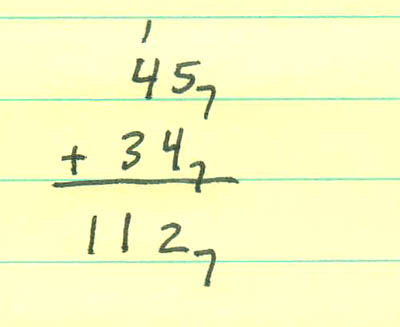 1
45₇
+ 34₇
112₇